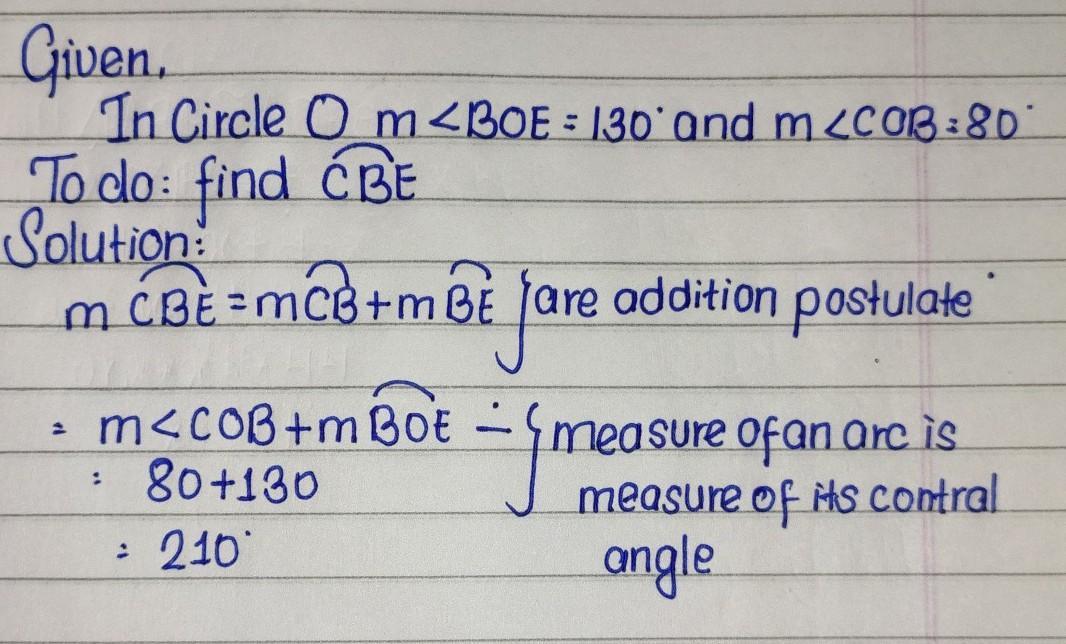 Given,
In Circle O m<BOE = 130° and m<COB = 80°
To do: find CBE
Solution:
m CBE = mCB + m BE } are addition postulate
= m<COB + m BOE ∸ { measure of an arc is
= 80+130 measure of its contral
= 210° angle